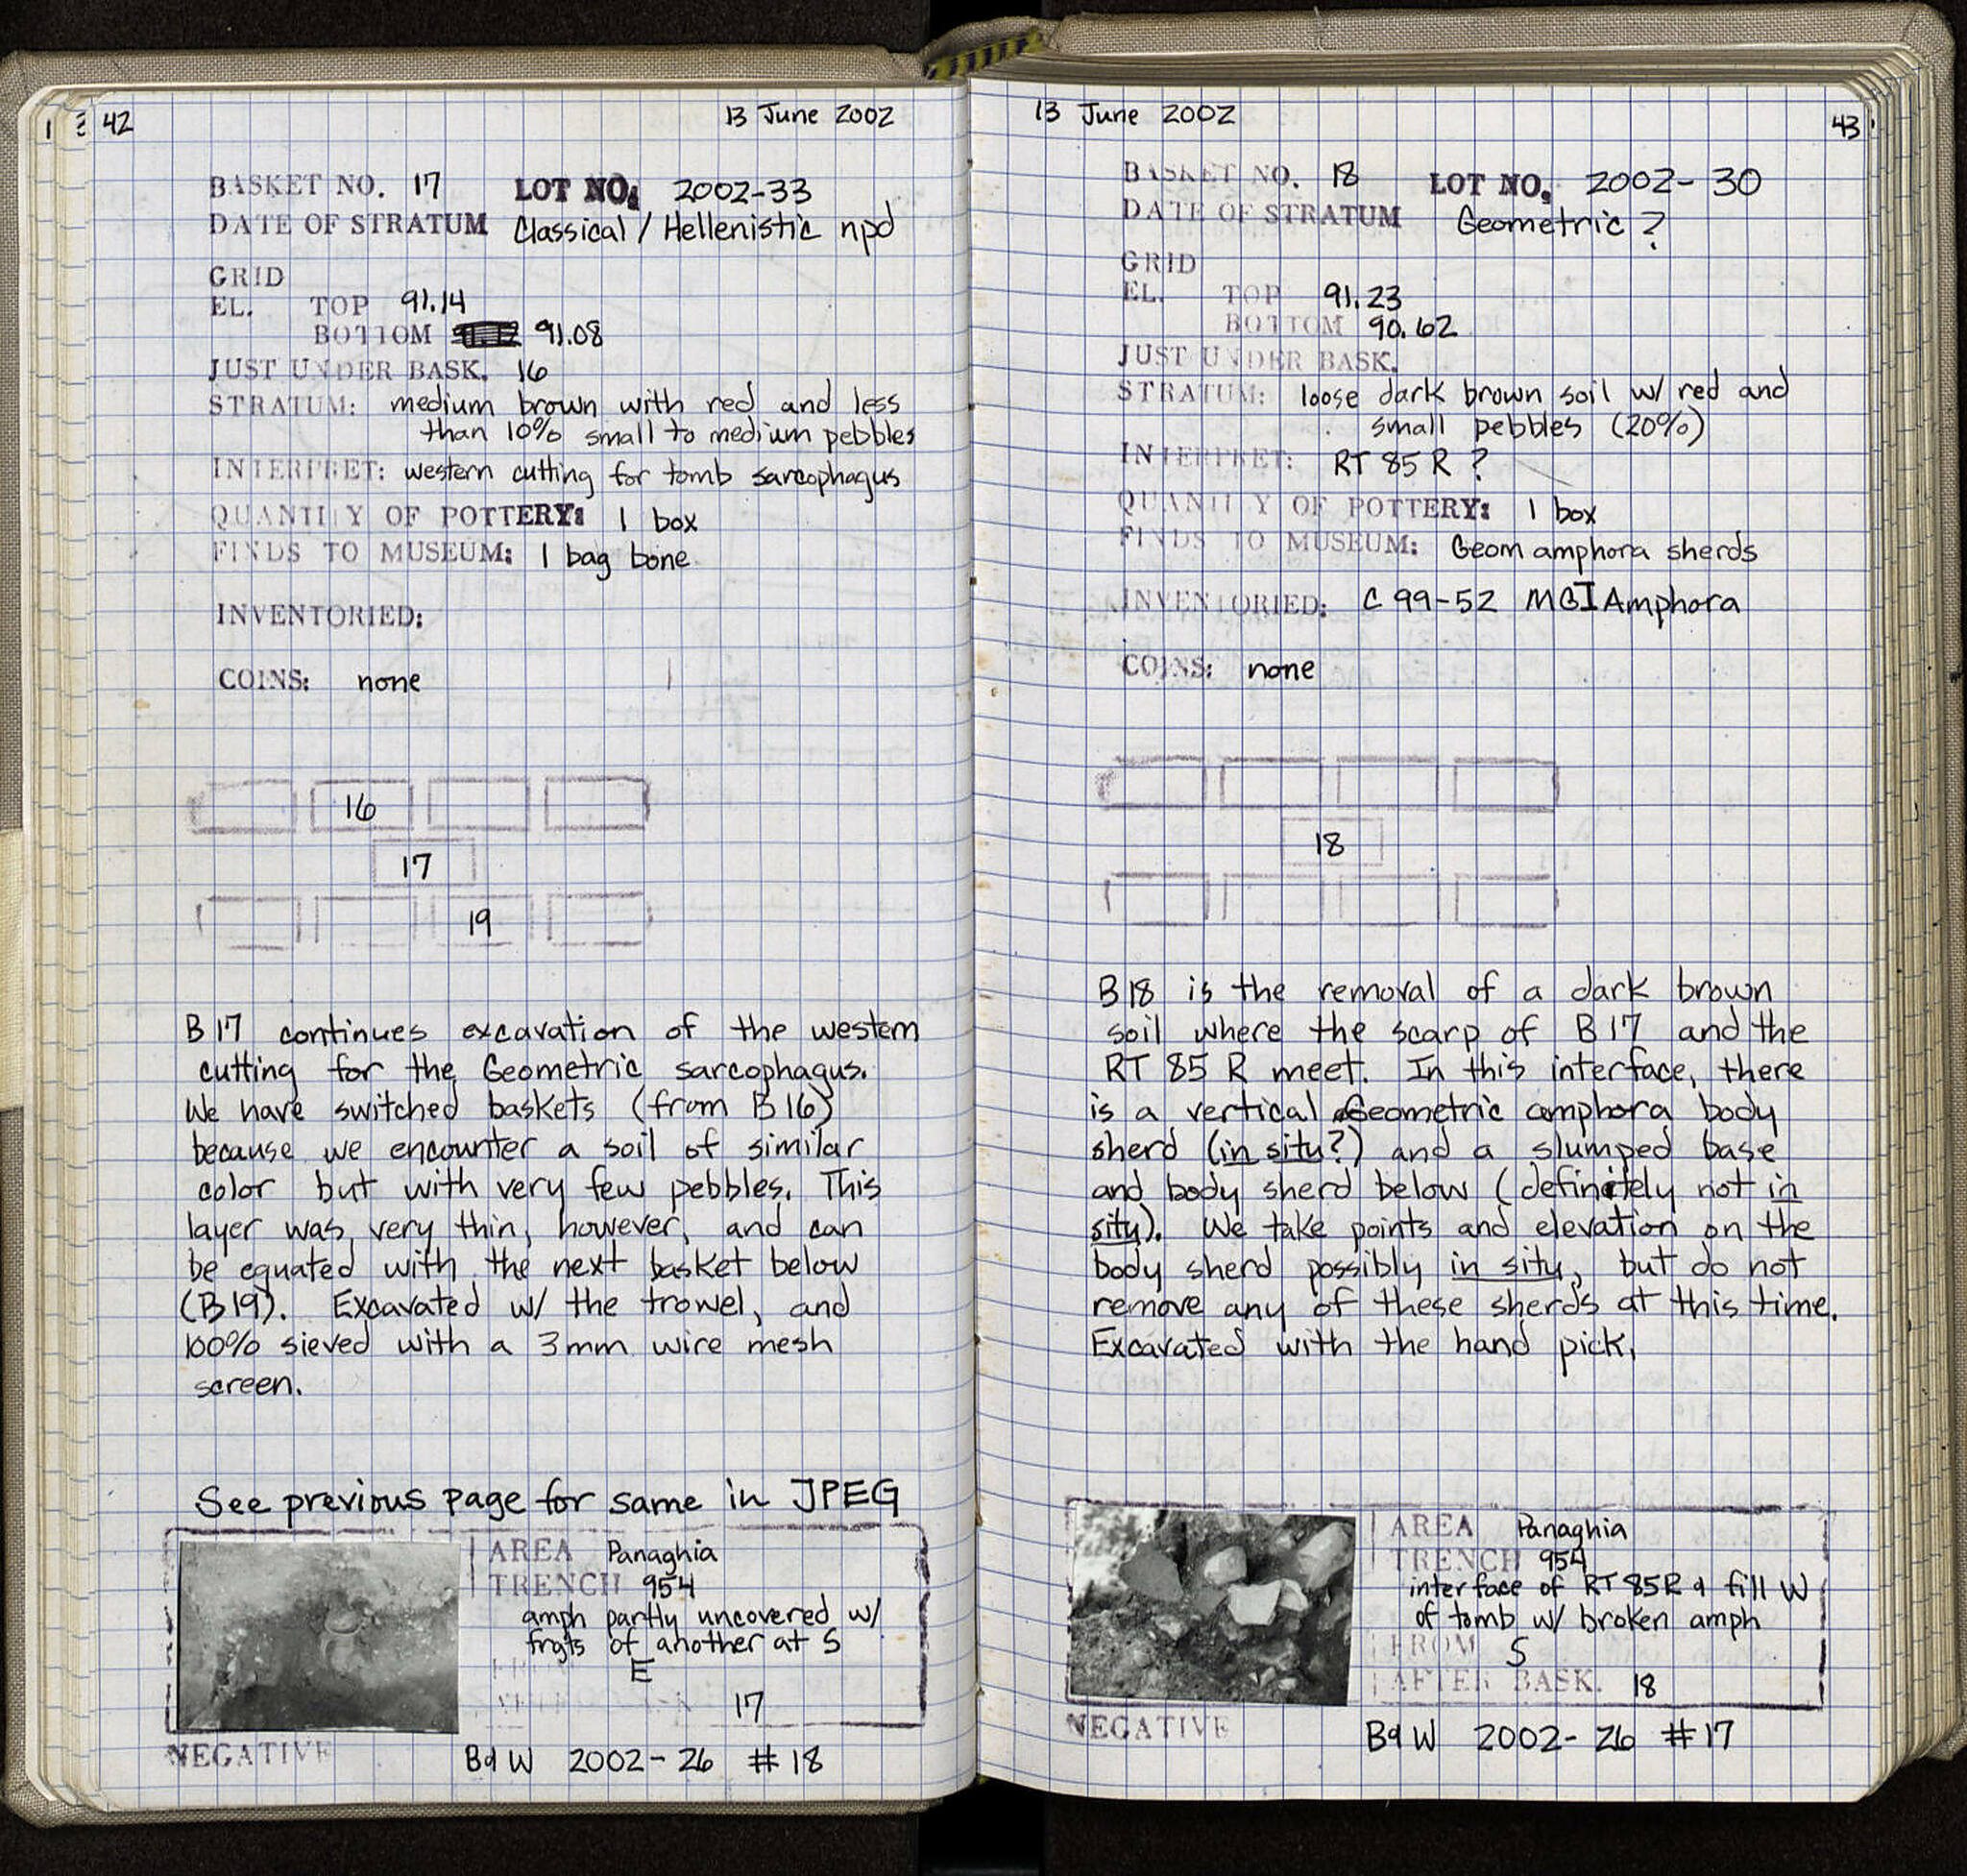 42
13 June 2002
BASKET NO. 17 LOT NO. 2002-33
DATE OF STRATUM Classical / Hellenistic npd
GRID
EL. TOP 91.14
BOTTOM 91.08
JUST UNDER BASK. 16
STRATUM: medium brown with red and less
than 10% small to medium pebbles
INTERPRET: western cutting for tomb sarcophagus
QUANTITY OF POTTERY: 1 box
FINDS TO MUSEUM: 1 bag bone
INVENTORIED:
COINS: none
16
17
19
B17 continues excavation of the western
cutting for the Geometric sarcophagus.
We have switched baskets (from B16)
because we encounter a soil of similar
color but with very few pebbles. This
layer was very thin, however, and can
be equated with the next basket below
(B19). Excavated w/ the trowel, and
100% sieved with a 3mm wire mesh
screen.
See previous page for same in JPEG
AREA Panaghia
TRENCH 954
amph partly uncovered w/
frgts of another at S
FROM E
AFTER BASK. 17
NEGATIVE B&W 2002-26 #18
13 June 2002
43
BASKET NO. 18 LOT NO. 2002-30
DATE OF STRATUM Geometric ?
GRID
EL. TOP 91.23
BOTTOM 90.62
JUST UNDER BASK.
STRATUM: loose dark brown soil w/ red and
small pebbles (20%)
INTERPRET: RT 85 R ?
QUANTITY OF POTTERY: 1 box
FINDS TO MUSEUM: Geom amphora sherds
INVENTORIED: C 99-52 MGI Amphora
COINS: none
18
B18 is the removal of a dark brown
soil where the scarp of B17 and the
RT 85 R meet. In this interface, there
is a vertical Geometric amphora body
sherd (in situ?) and a slumped base
and body sherd below (definitely not in
situ). We take points and elevation on the
body sherd possibly in situ, but do not
remove any of these sherds at this time.
Excavated with the hand pick.
AREA Panaghia
TRENCH 954
interface of RT 85R & fill W
of tomb w/ broken amph
FROM S
AFTER BASK. 18
NEGATIVE B&W 2002-26 #17